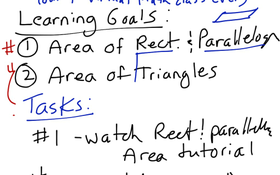 Learning Goals:
# ① Area of Rect. & Parallelogram
② Area of Triangles
Tasks:
#1 - watch Rect! parallelog
Area tutorial